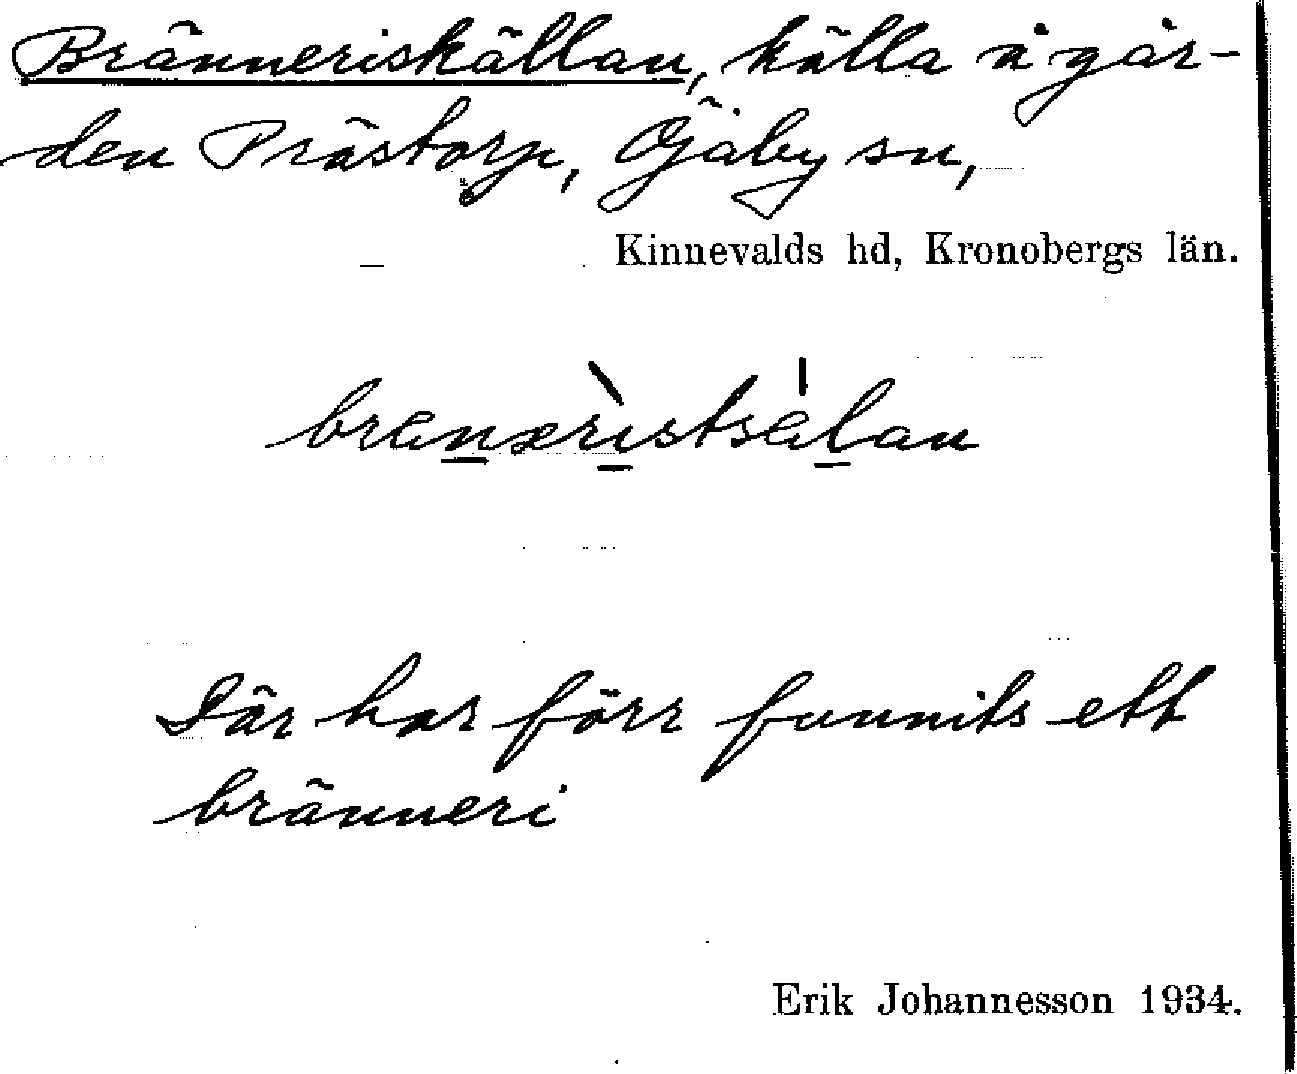 Bränneriskällan, källa å går-
den Prästorp, Öjaby sn,
Kinnevalds hd, Kronobergs län.
Där har förr funnits ett
bränneri
Erik Johannesson 1934.